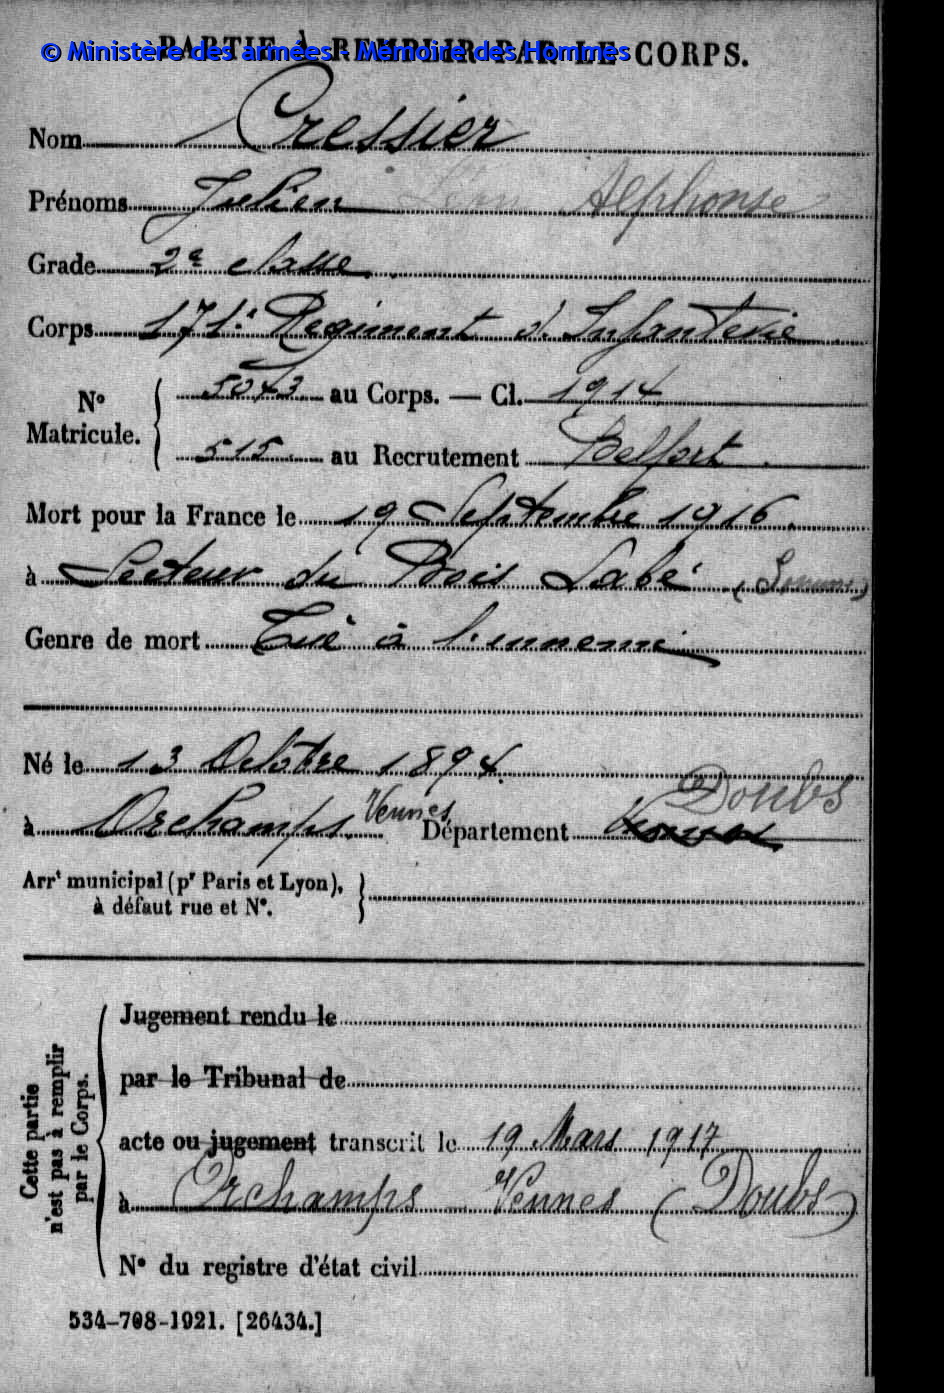 PARTIE à REMPLIR PAR LE CORPS.
© Ministère des armées - Mémoire des Hommes
Nom Cressier
Prénoms Julien Léon Alphonse
Grade 2e classe
Corps 171e Régiment d'Infanterie
N° Matricule. { 5073 au Corps. — Cl. 1914
515 au Recrutement Belfort
Mort pour la France le 19 Septembre 1916.
à Secteur du Bois Labé (Somme)
Genre de mort Tué à l'ennemi
Né le 13 Octobre 1894
à Orchamps. Vennes Département Doubs
Arrt municipal (pr Paris et Lyon),
à défaut rue et N°.
Cette partie n'est pas à remplir par le Corps.
Jugement rendu le
par le Tribunal de
acte ou jugement transcrit le 19 Mars 1917
à Orchamps - Vennes (Doubs)
N° du registre d'état civil
534-708-1921. [26434.]